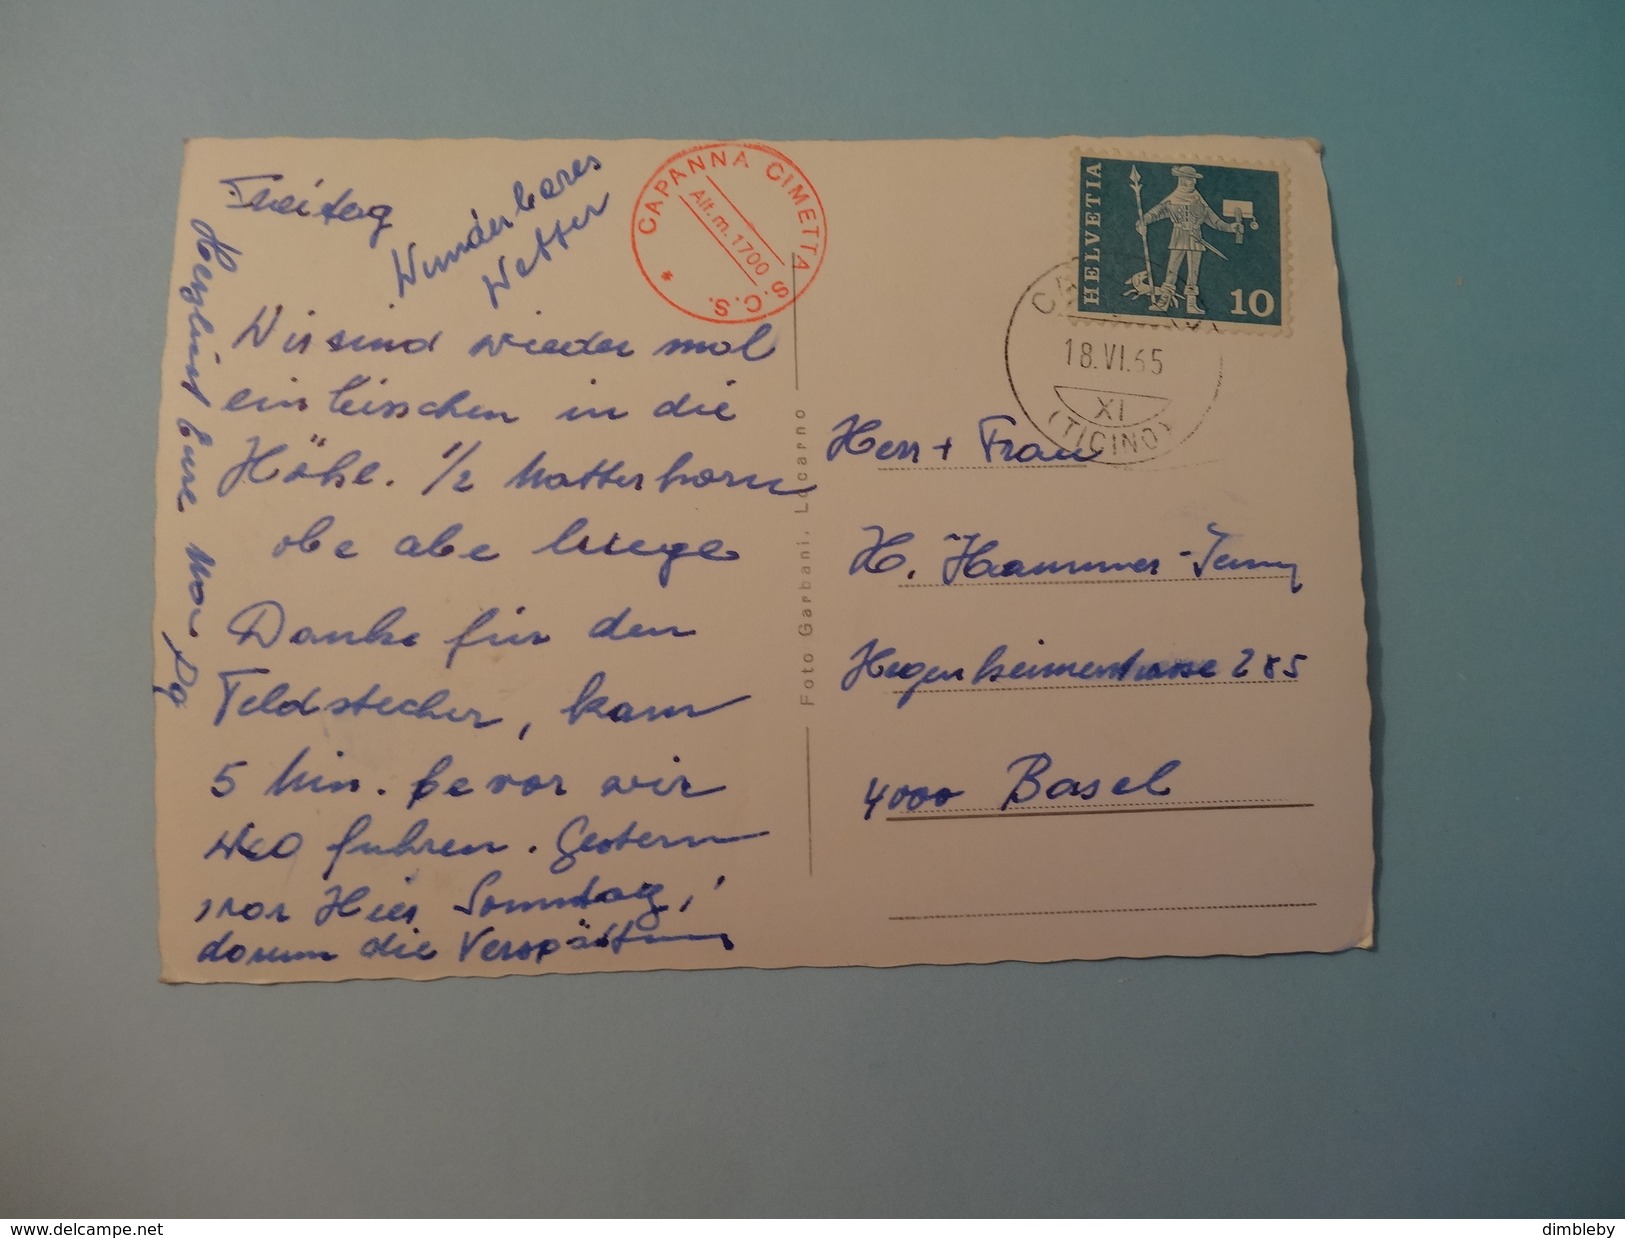 Freitag
Wunderbares
Wetter
Wir sind wieder mal
ein bisschen in die
Höhe. 1/2 Matterhorn
obe abe luege
Danke für den
Feldstecher, kam
5 Min. bevor wir
weg fuhren. Gestern
war Hier Sonntag,!
darum die Verspätung
Herzlichst Eure
CAPANNA CIMETTA S.C.S. *
Alt. m. 1700
Foto Garbani, Locarno
HELVETIA
10
18.VI.65
XI
(TICINO)
Herr + Frau
H. Hammer-Jenny
Hegenheimerstrasse 285
4000 Basel
www.delcampe.net
dimbleby